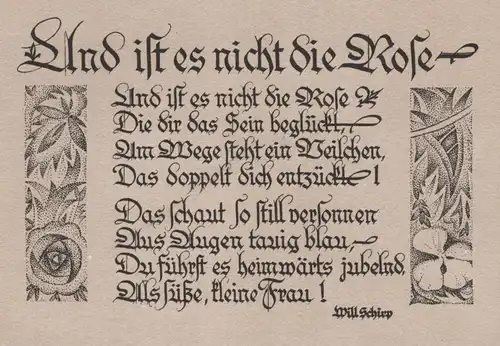 Und ist es nicht die Rose
Und ist es nicht die Rose
Die dir das Sein beglückt,
Am Wege steht ein Veilchen,
Das doppelt dich entzückt!
Das schaut so still versonnen
Aus Augen tauig blau,
Du führst es heimwärts jubelnd,
Als süße, kleine Frau!
Will Schirp